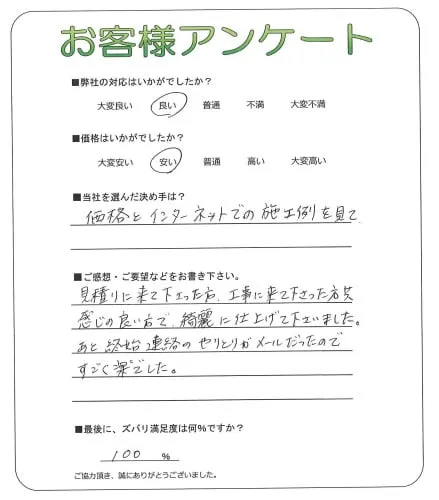 お客様アンケート
■弊社の対応はいかがでしたか?
大変良い 良い 普通 不満 大変不満
■価格はいかがでしたか?
大変安い 安い 普通 高い 大変高い
■当社を選んだ決め手は?
価格とインターネットでの施工例を見て
■ご感想・ご要望などをお書き下さい。
見積りに来て下さった方、工事に来て下さった方共
感じの良い方で、綺麗に仕上げて下さいました。
あと終始連絡のやりとりがメールだったので
すごく楽でした。
■最後に、ズバリ満足度は何%ですか?
100 %
ご協力頂き、誠にありがとうございました。